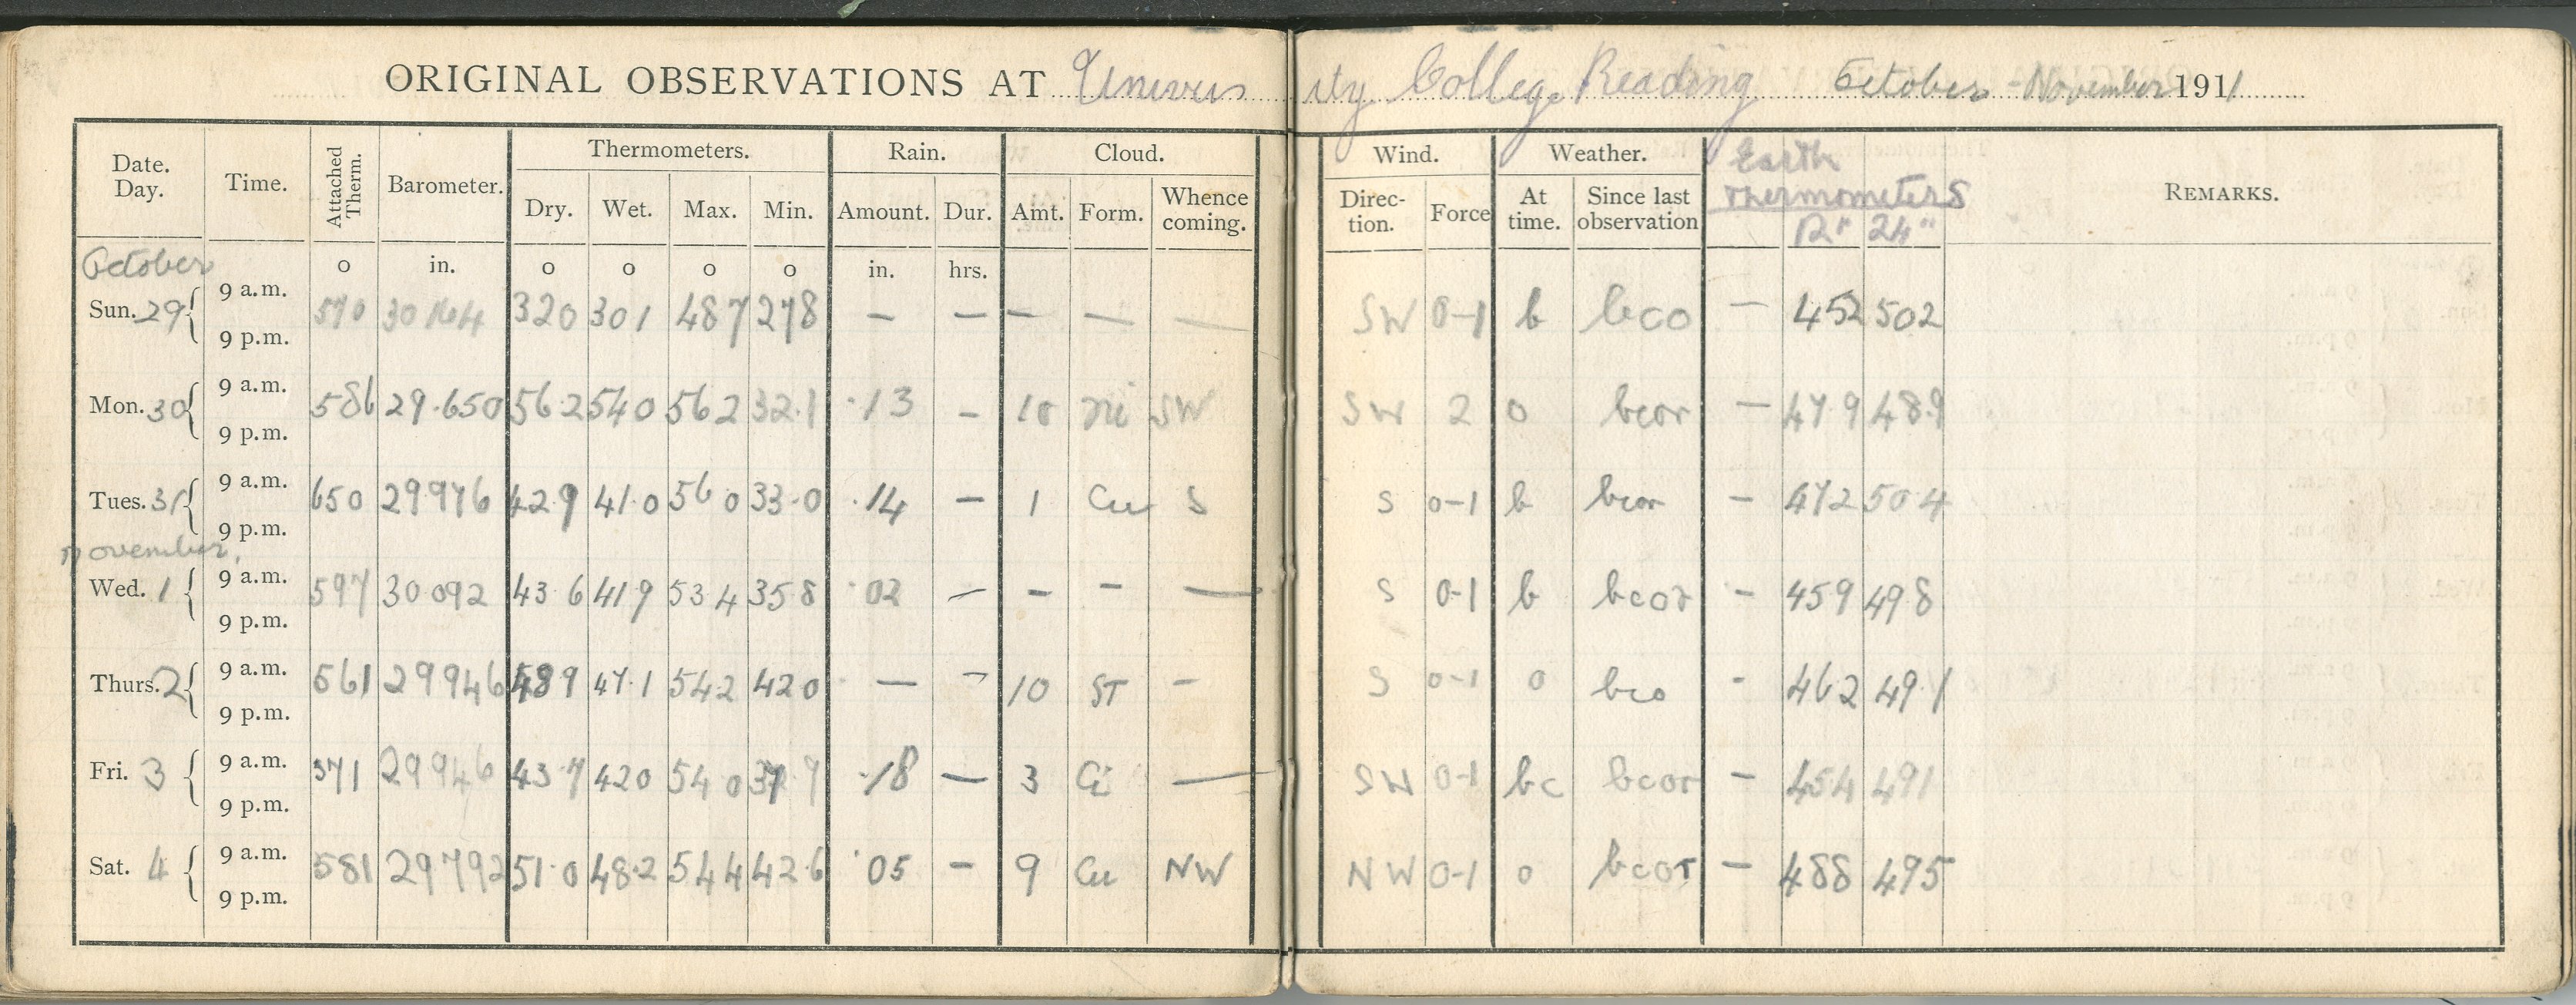 ORIGINAL OBSERVATIONS AT University College Reading October - November 1911
Date. Day. Time. Attached Therm. Barometer. Thermometers. Rain. Cloud. Wind. Weather. Earth Thermometers REMARKS.
Dry. Wet. Max. Min. Amount. Dur. Amt. Form. Whence coming. Direc- tion. Force At time. Since last observation 12" 24"
October o in. o o o o in. hrs.
Sun. 29 9 a.m. 570 320 301 487 278 — — — — — SW 0-1 b bco — 452 502
9 p.m.
Mon. 30 9 a.m. 586 29.650 56.2 540 562 32.1 .13 — 10 Ni SW SW 2 o bcor — 47.9 48.9
9 p.m.
Tues. 31 9 a.m. 650 29976 42.9 41.0 56 0 33.0 .14 — 1 Cu S S 0-1 b bcor — 472 504
9 p.m.
November.
Wed. 1 9 a.m. 597 30 092 43.6 419 534 358 .02 — — — — S 0-1 b bcor — 459 498
9 p.m.
Thurs. 2 9 a.m. 561 29946 489 47.1 542 420 — — 10 ST — S 0-1 o bco - 462 49.1
9 p.m.
Fri. 3 9 a.m. 571 29946 43.7 420 540 37.9 .18 — 3 Ci — SW 0-1 bc bcor — 454 491
9 p.m.
Sat. 4 9 a.m. 581 29792 51.0 48.2 544 42.6 .05 — 9 Cu NW NW 0-1 o bcor — 488 495
9 p.m.